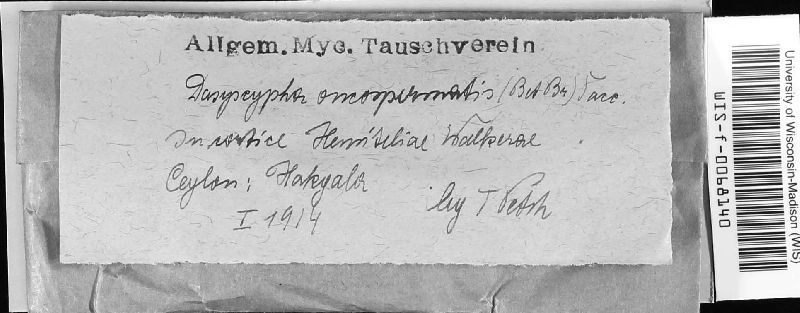 Allgem. Myc. Tauschverein
Dasyscypha oncospermatis (B et Br) Sacc.
In cortice Hemiteliae Walkerae
Ceylon: Hakgala
I 1914 leg T Petch
University of Wisconsin-Madison (WIS)
WIS-f-0068140